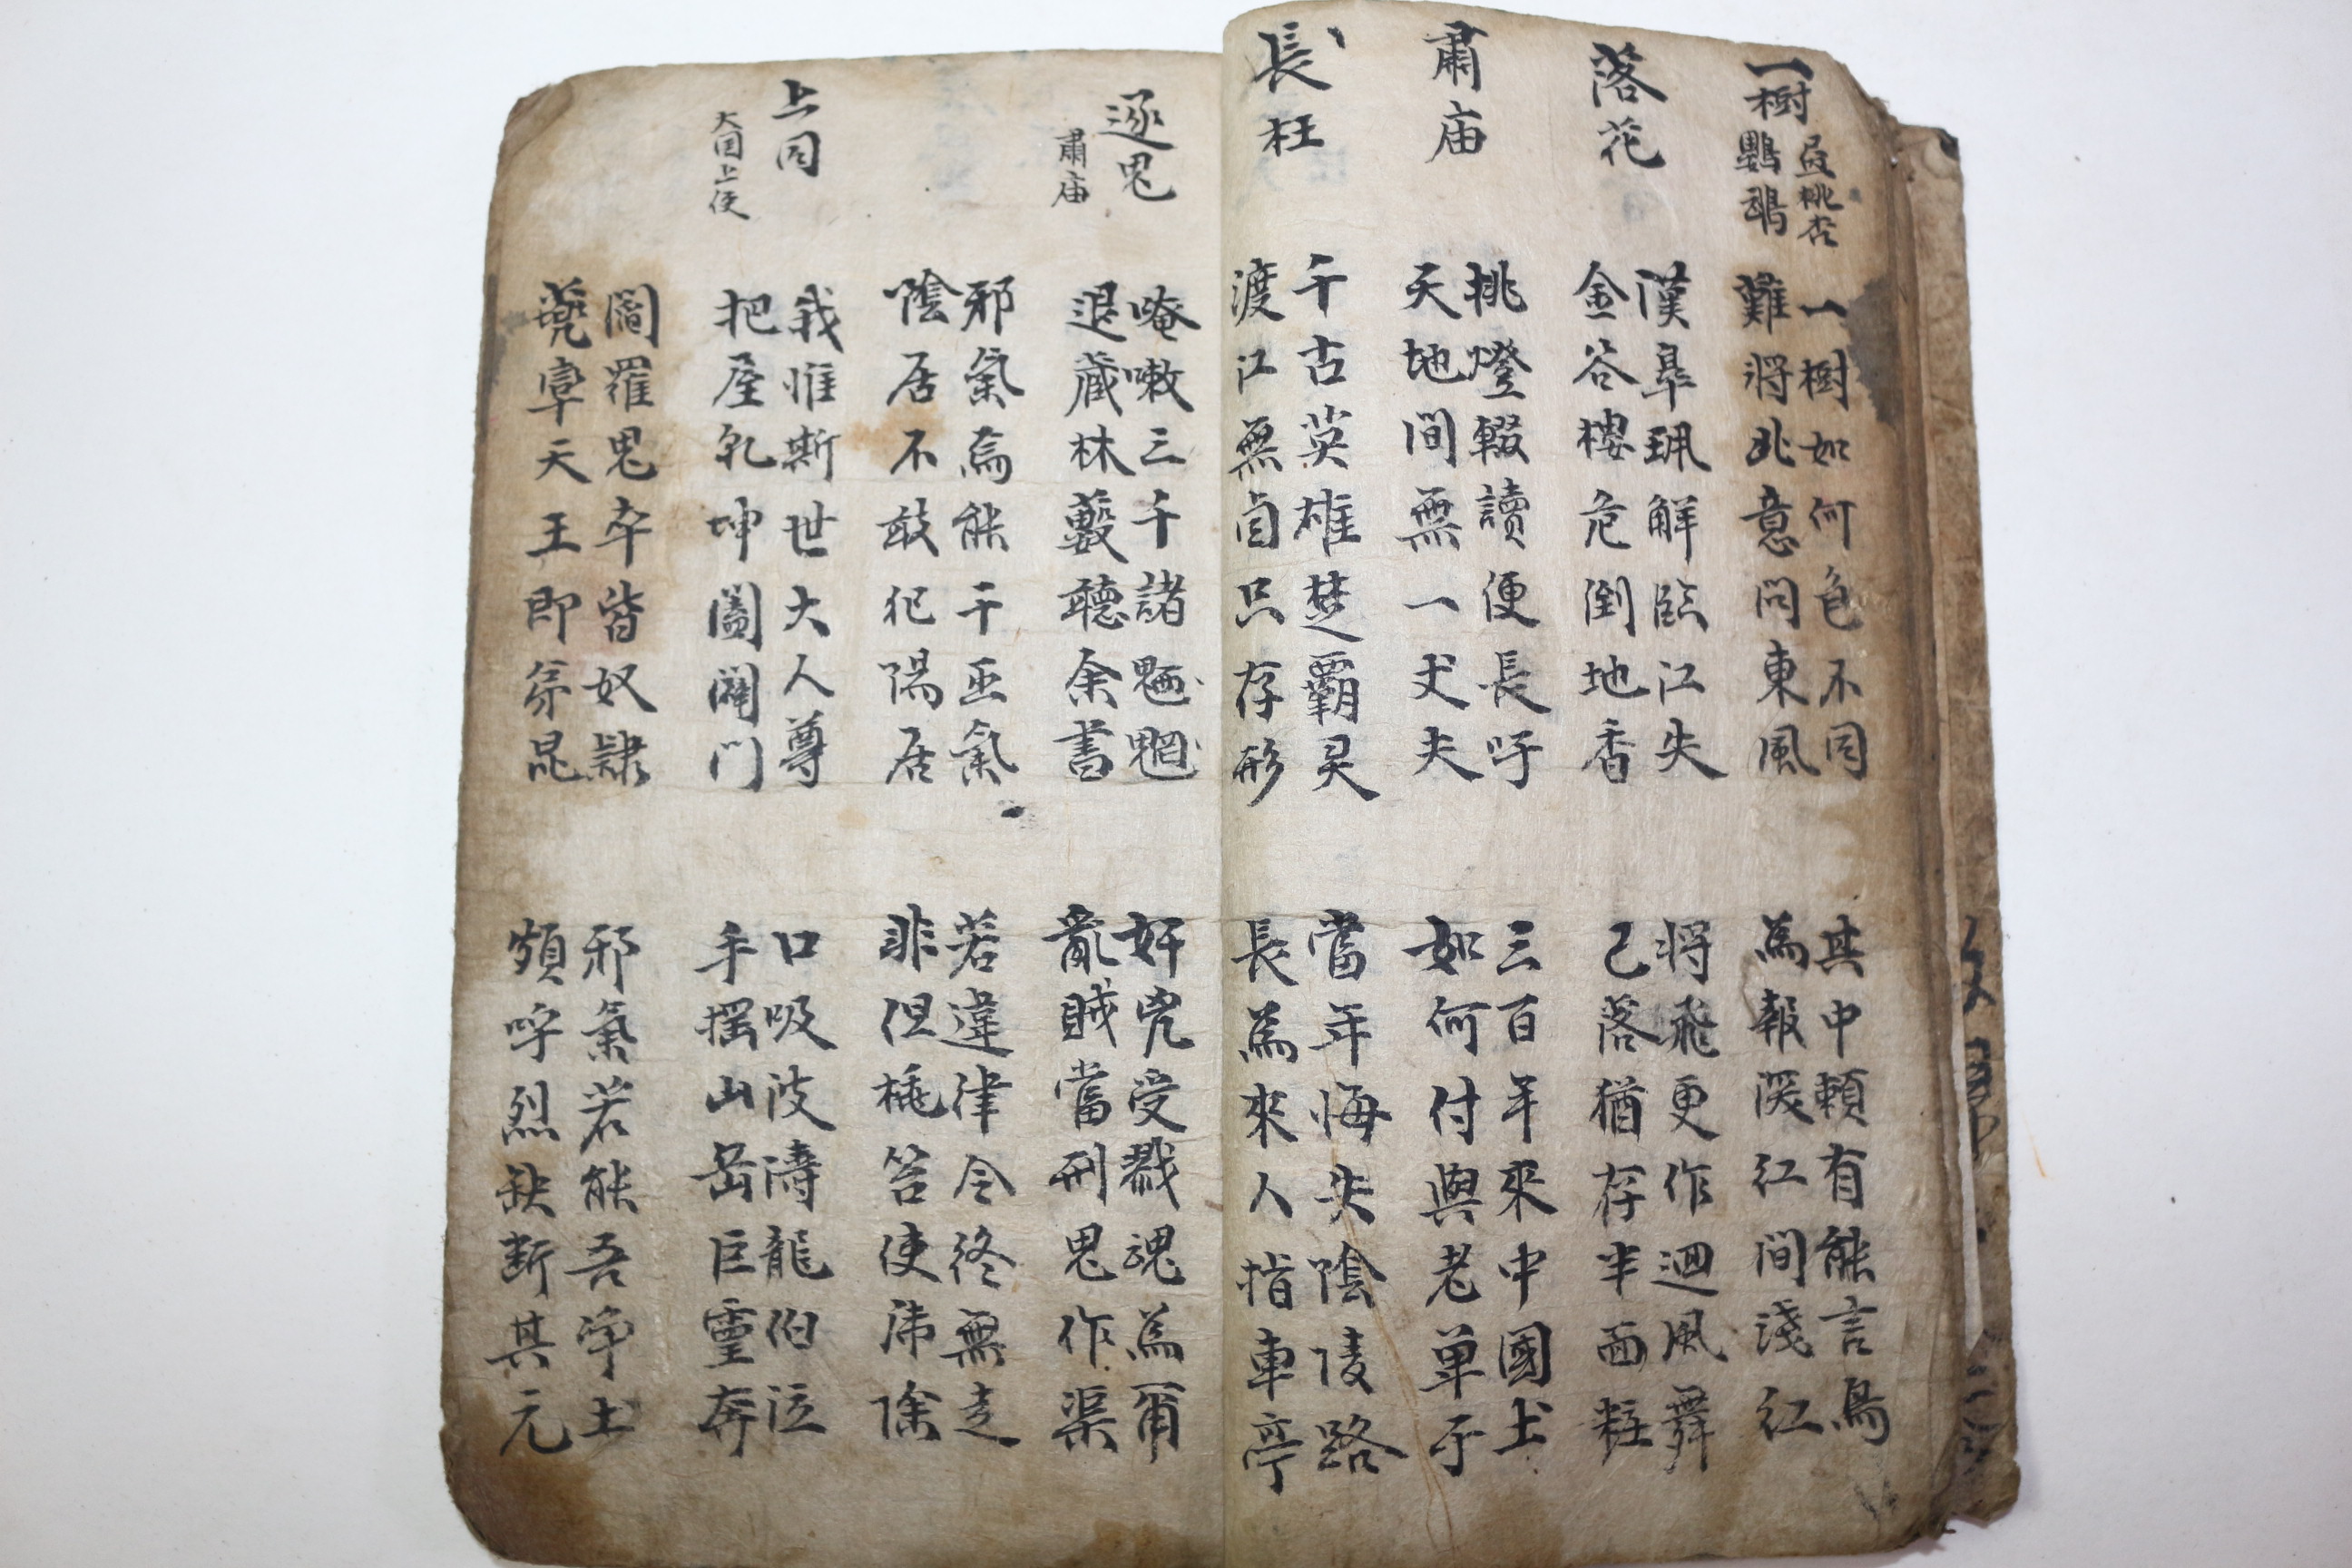 一樹
桃杏
鸚鵡
一樹如何色不同
難將此意問東風
其中賴有能言鳥
為報深紅間淺紅
落花
漢皐珮解臨江失
金谷樓危倒地香
將飛更作迴風舞
已落猶存半面粧
肅庙
挑燈輟讀便長吁
天地間無一丈夫
三百年來中國土
如何付與老单于
長枉
千古英雄楚覇灵
渡江無面只存形
當年悔失陰陵路
長為來人指車亭
逐鬼
肅庙
唵嗽三千諸魉魍
退藏林藪聽余書
奸兇受戮魂為爾
亂賊當刑鬼作渠
邪氣焉能干正氣
陰居不敢犯陽居
若違律令終無走
非但桃笞使沛除
上同
大国上使
我惟斯世大人尊
把屋乾坤闔闢門
口吸波濤龍伯泣
手搖山岳巨靈奔
閻羅鬼卒皆奴隷
宰天王即弟昆
邪氣若能吾淨土
須呼烈缺断其元